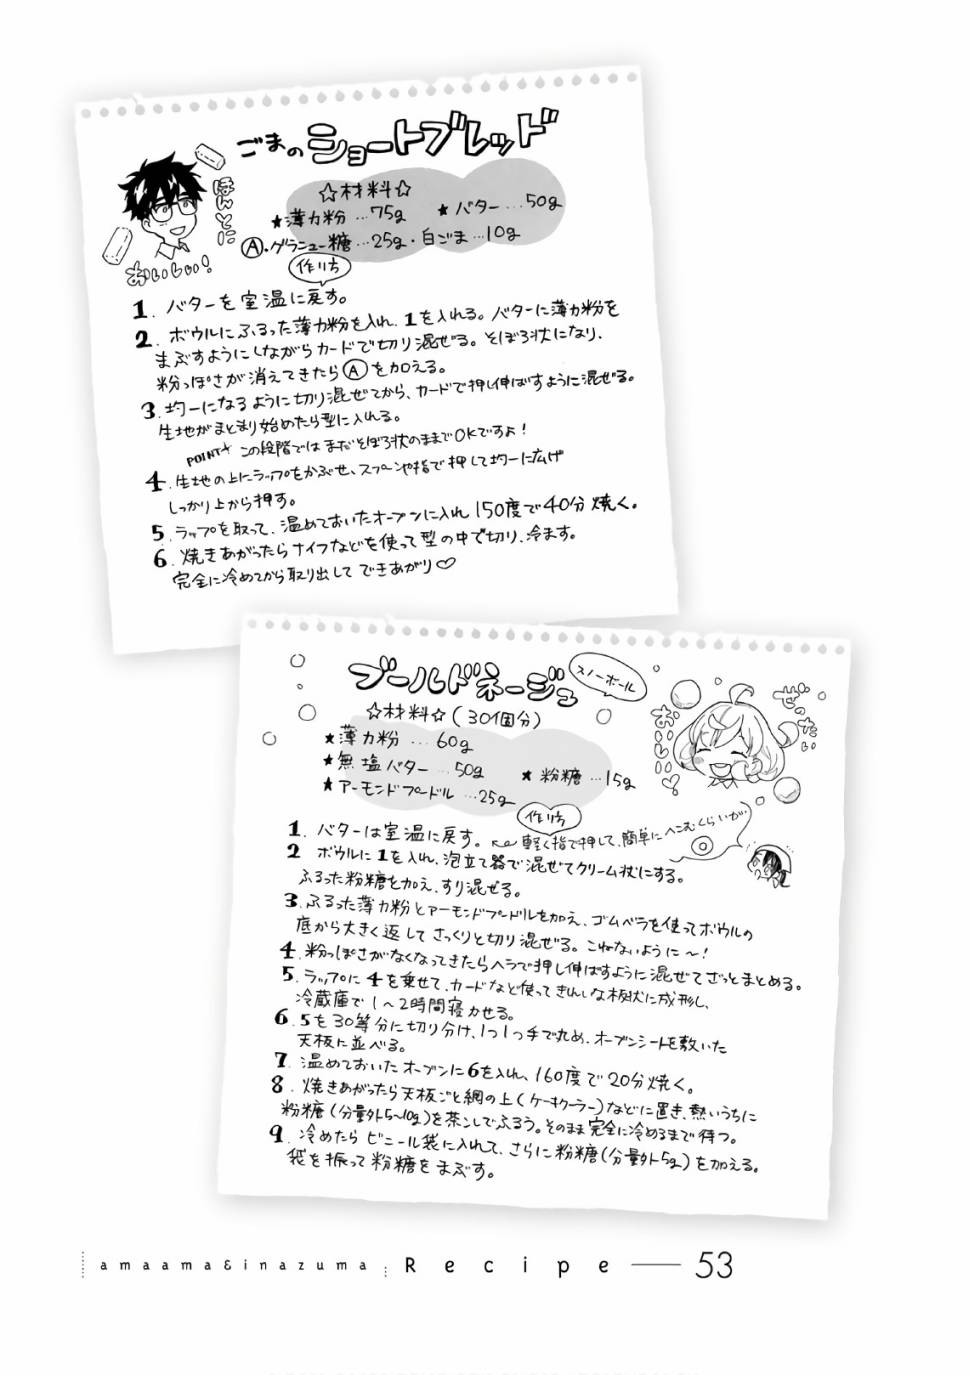 ごまのショートブレッド
ほんとに
おいしい!
☆材料☆
★薄力粉…75g ★バター…50g
Ⓐ・グラニュー糖…25g・白ごま…10g
作り方
1. バターを室温に戻す。
2. ボウルにふるった薄力粉を入れ、1を入れる。バターに薄力粉を
まぶすようにしながらカードで切り混ぜる。そぼろ状になり、
粉っぽさが消えてきたらⒶを加える。
3. 均一になるように切り混ぜてから、カードで押し伸ばすように混ぜる。
生地がまとまり始めたら型に入れる。
POINT★ この段階ではまだそぼろ状のままでOKですよ!
4. 生地の上にラップをかぶせ、スプーンや指で押して均一に広げ
しっかり上から押す。
5. ラップを取って、温めておいたオーブンに入れ150度で40分焼く。
6. 焼きあがったらナイフなどを使って型の中で切り、冷ます。
完全に冷めてから取り出してできあがり♡
ブールドネージュ
スノーボール
ぜったい
おいしい♡
☆材料☆(30個分)
★薄力粉…60g
★無塩バター…50g ★粉糖…15g
★アーモンドプードル…25g
作り方
1. バターは室温に戻す。
軽く指で押して、簡単にへこむくらいが…
◎
2 ボウルに1を入れ、泡立て器で混ぜてクリーム状にする。
ふるった粉糖を加え、すり混ぜる。
3. ふるった薄力粉とアーモンドプードルを加え、ゴムベラを使ってボウルの
底から大きく返してさっくりと切り混ぜる。こねないように〜!
4. 粉っぽさがなくなってきたらヘラで押し伸ばすように混ぜてざっとまとめる。
5. ラップに4を乗せて、カードなど使ってきんしな板状に成形し、
冷蔵庫で1〜2時間寝かせる。
6. 5を30等分に切り分け、1つ1つ手で丸め、オーブンシートを敷いた
天板に並べる。
7. 温めておいたオーブンに6を入れ、160度で20分焼く。
8. 焼きあがったら天板ごと網の上(ケーキクーラー)などに置き、熱いうちに
粉糖(分量外5〜10g)を茶こしでふるう。そのまま完全に冷めるまで待つ。
9. 冷めたらビニール袋に入れて、さらに粉糖(分量外5g)を加える。
袋を振って粉糖をまぶす。
amaama&inazuma Recipe — 53